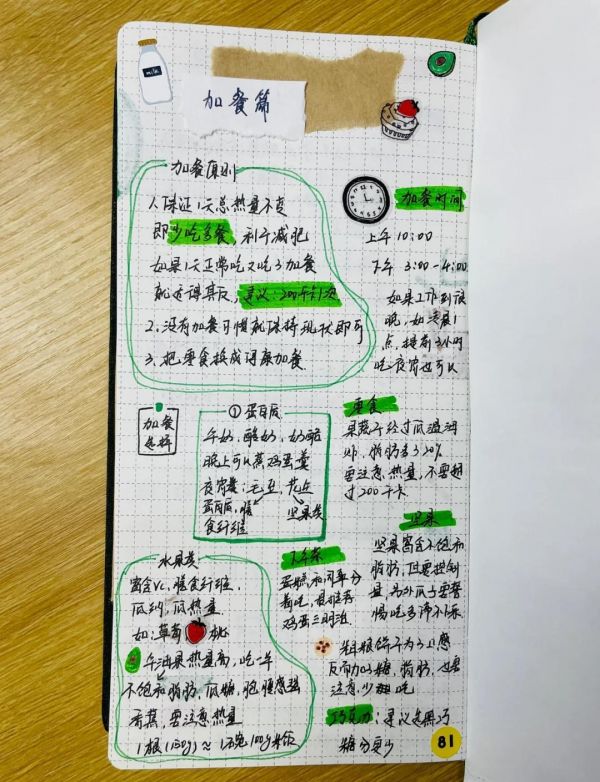 milk
加餐篇
加餐原则
1、保证1天总热量不变
即少吃多餐，利于减肥
如果1天正常吃又吃了加餐
就适得其反，建议：200千卡/次
2、没有加餐习惯就保持现状即可
3、把零食换成健康加餐
加餐时间
上午 10:00
下午 3:00-4:00
如果工作到很
晚，如凌晨1
点，提前3小时
吃夜宵也可以
加餐
选择
① 蛋白质
牛奶、酸奶、奶酪
晚上可以蒸鸡蛋羹
夜宵类：毛豆、花生
蛋白质、膳 坚果类
食纤维
零食
果蔬干经过低温油
炸，脂肪有20%
要注意热量，不要超
过200千卡
坚果
坚果富含不饱和
脂肪，但要控制
量，另外瓜子要警
惕吃多停不下来
水果类
富含Vc、膳食纤维、
低钠、低热量
如：草莓 桃
牛油果热量高，吃一半
不饱和脂肪，低糖，饱腹感强
香蕉，要注意热量
1根(150g)≈1碗100g米饭
下午茶
蛋糕和同事分
着吃，退而选
鸡蛋三明治
粗粮饼干为了口感
反而加了糖、脂肪，也要
注意，少吃
巧克力：建议选黑巧
糖分更少
81